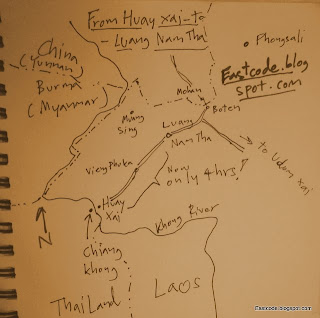 From Huay xai - to
- Luang Nam Tha
China
(Yunnan)
Burma
(Myanmar)
• Phongsali
Eastcode.blog
spot.com
Mohan
Boten
Muang
Sing
Luang
Nam Tha
Viengphuka
Now
only 4hrs!
to Udom xai
Huay
Xai
N
Chiang
khong
Khong River
Thailand
Laos
Eastcode.blogspot.com